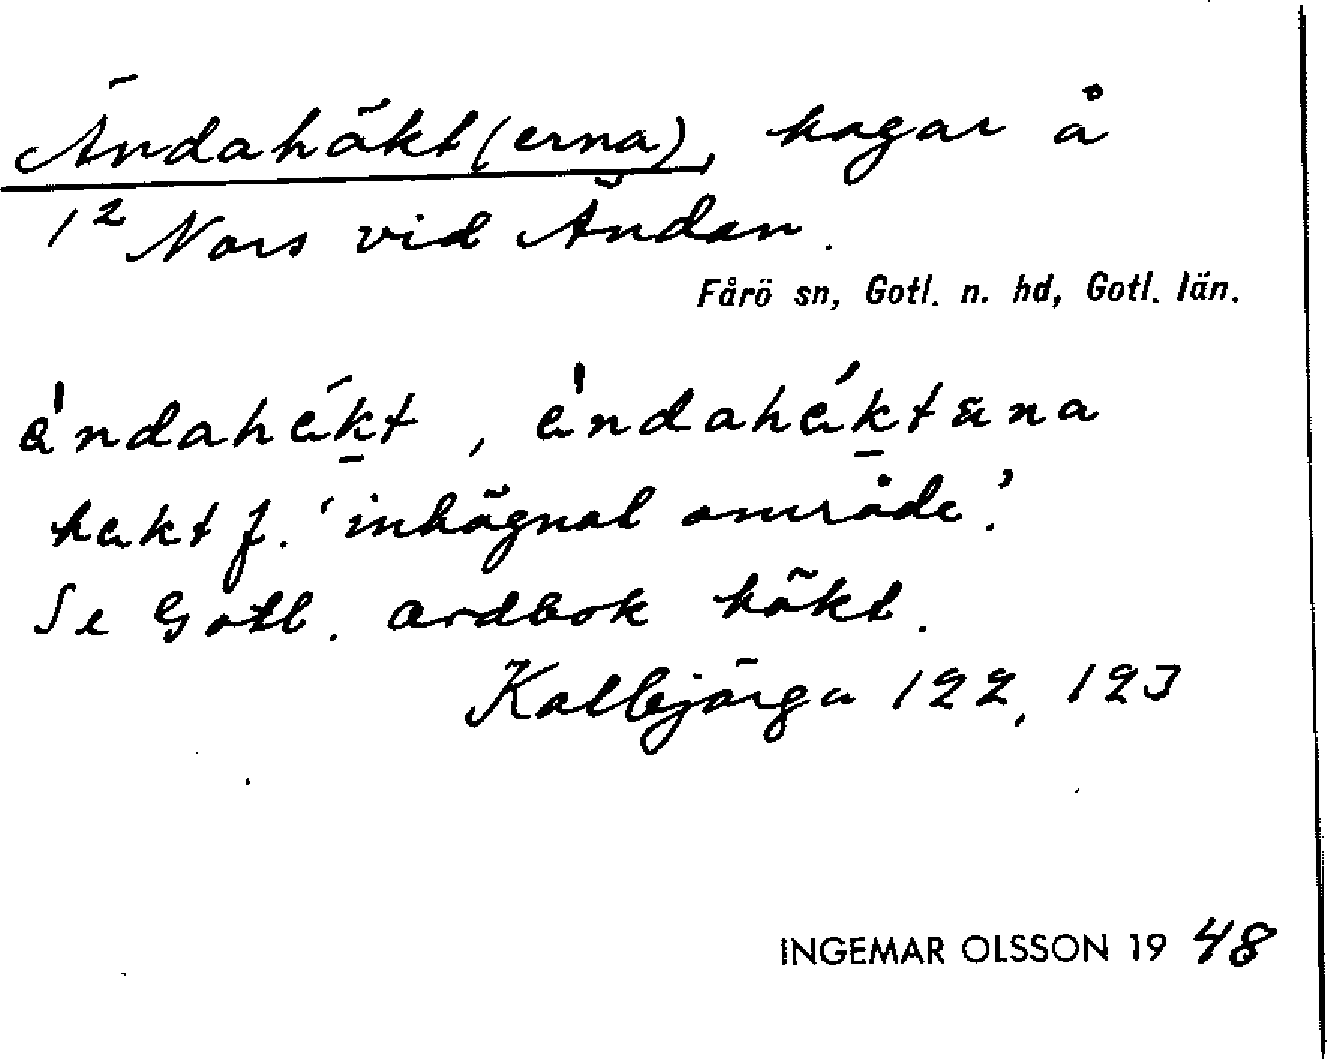 Ändahäkt(erna), hagar å
1² Nors vid Änden.
Fårö sn, Gotl. n. hd, Gotl. län.
ändahäkt, ändahäktäna
häkt f. 'inhägnat område'.
Se Gotl. ordbok häkt.
Kalbjärga 122, 123
INGEMAR OLSSON 1948